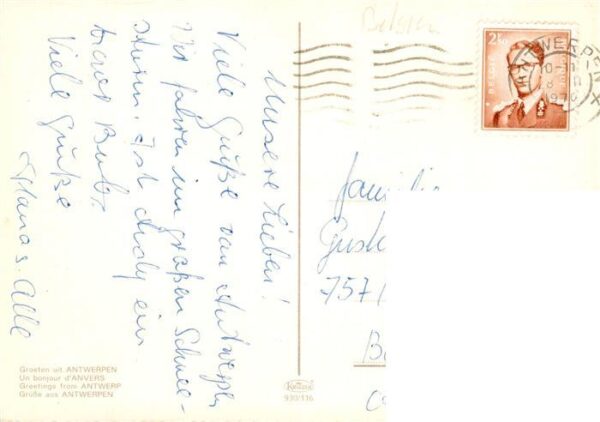 Belgien
ANTWERPEN X
1970
2F50
Unsere Lieben!
Viele Grüße von Antwerpen
Wir fahren im großen Schnee-
sturm. Ist Andy ein
braver Bub.
Viele Grüße
Hans u. Alle
Familie
Gust
757
B
Groeten uit ANTWERPEN
Un bonjour d'ANVERS
Greetings from ANTWERP
Grüße aus ANTWERPEN
Krüger
930/116